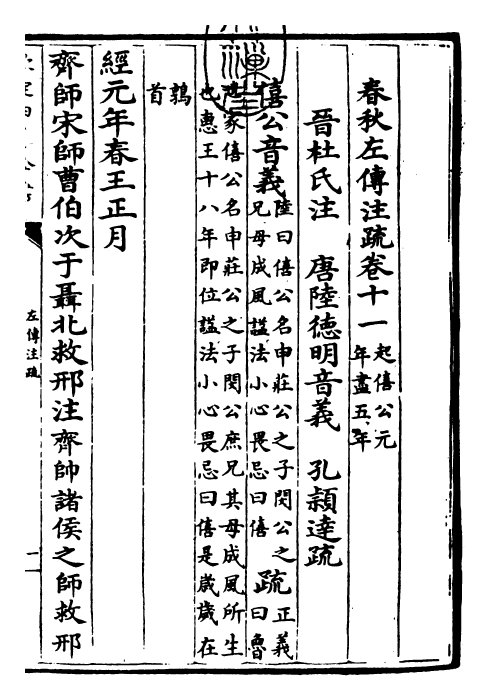 春秋左傳注疏卷十一 起僖公元年盡五年
晉杜氏注 唐陸德明音義 孔穎達疏
僖公音義 陸曰僖公名申莊公之子閔公之兄母成風謚法小心畏忌曰僖 疏 正義曰魯
家僖公名申莊公之子閔公庶兄其母成風所生也惠王十八年即位謚法小心畏忌曰僖是歲歲在
鶉首
經元年春王正月
齊師宋師曹伯次于聶北救邢注齊帥諸侯之師救邢
左傳注疏
一